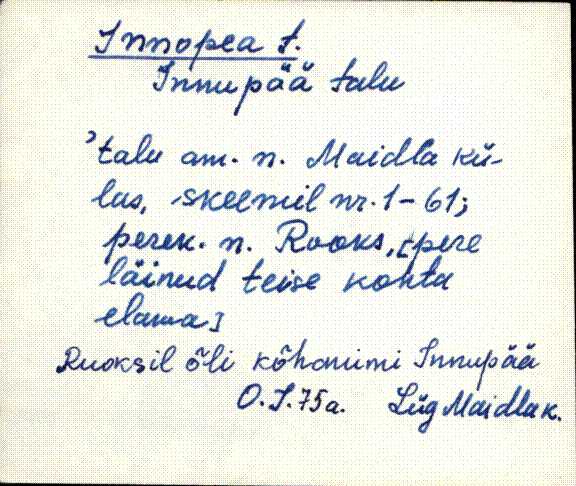 Innopea t.
Innupää talu
'talu am. n. Maidla kü-
las, skeemil nr. 1-61;
perek. n. Rooks, [pere
läinud teise kohta
elama]
Ruoksil õli kõhanimi Innupää
O. I. 75a. Lüg Maidla k.